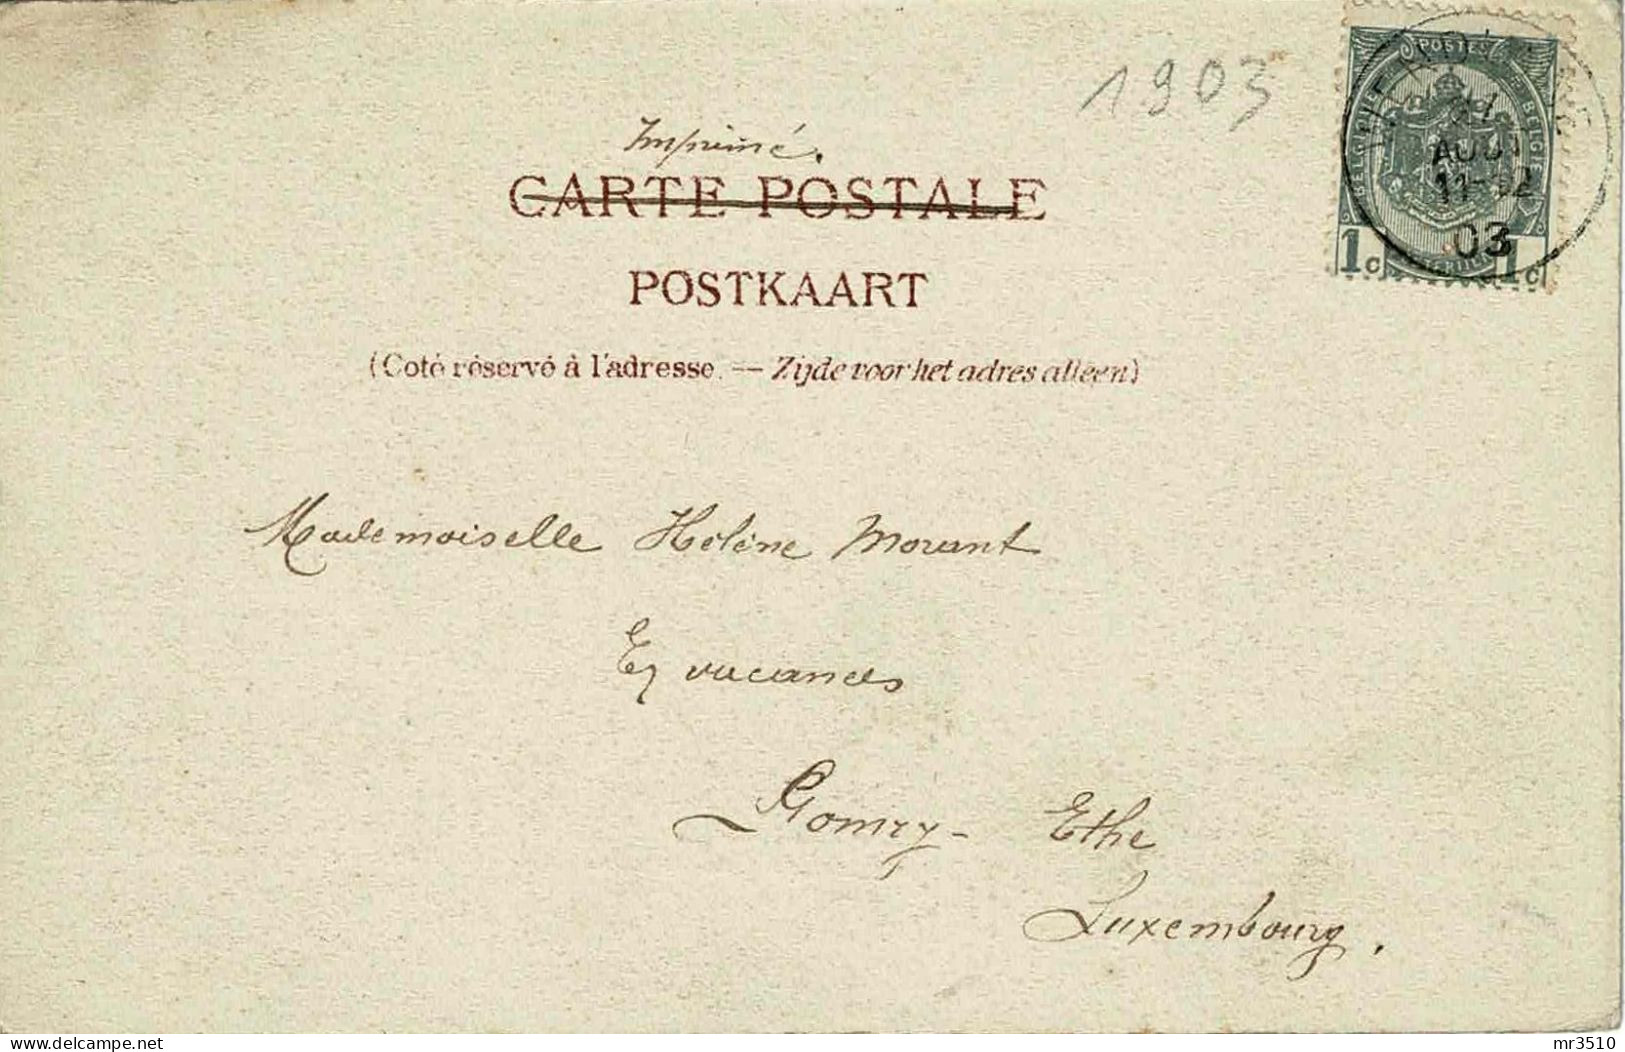 1903
POSTES
BELGIQUE BELGIE
AOUT
11-12
03
1c 1c
Imprimé.
CARTE POSTALE
POSTKAART
(Coté réservé à l'adresse. — Zijde voor het adres alleen)
Mademoiselle Hélène Morant
En vacances
Gomry - Ethe
Luxembourg.
mr3510